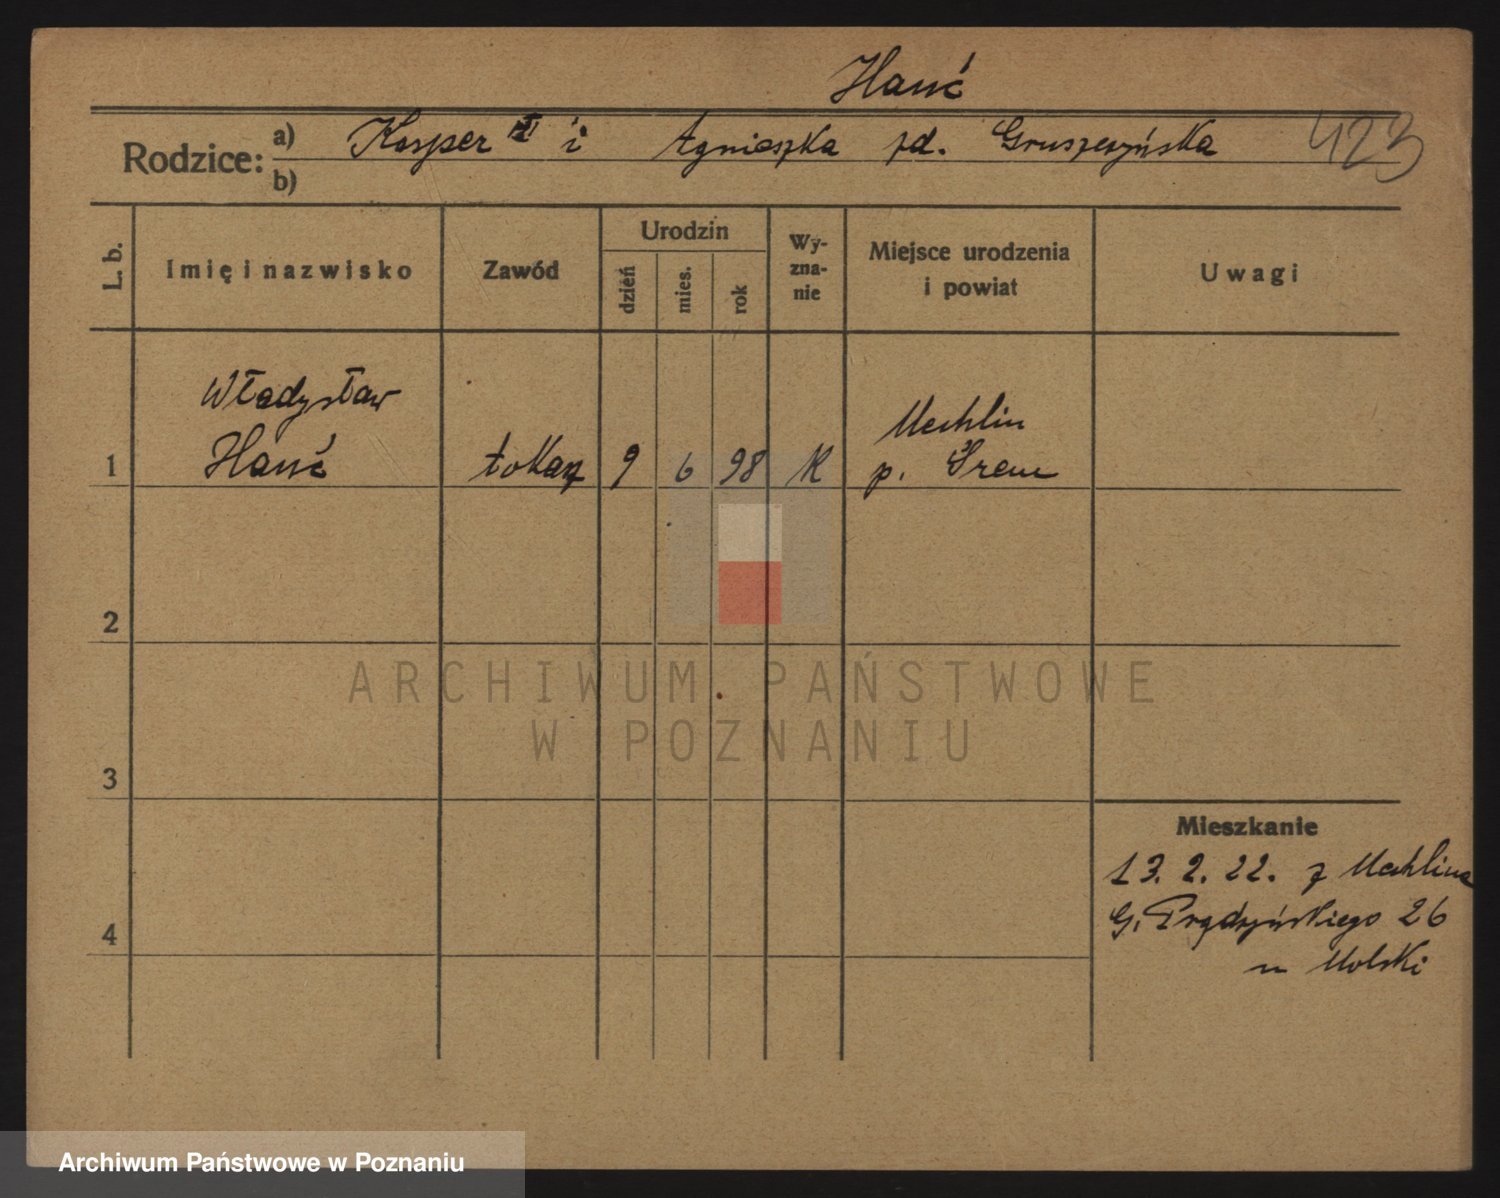 Hanć
Rodzice: a) Kasper i Agnieszka zd. Gruszczyńska 423
b)
L. b. Imię i nazwisko Zawód Urodzin dzień mies. rok Wyznanie Miejsce urodzenia i powiat Uwagi
Władysław Mechlin
1 Hanć tokarz 9 6 98 K p. Śrem
2
ARCHIWUM PAŃSTWOWE
W POZNANIU
3
Mieszkanie
13. 2. 22. z Mechlina
4 G. Prądzyńskiego 26
u Molski
Archiwum Państwowe w Poznaniu